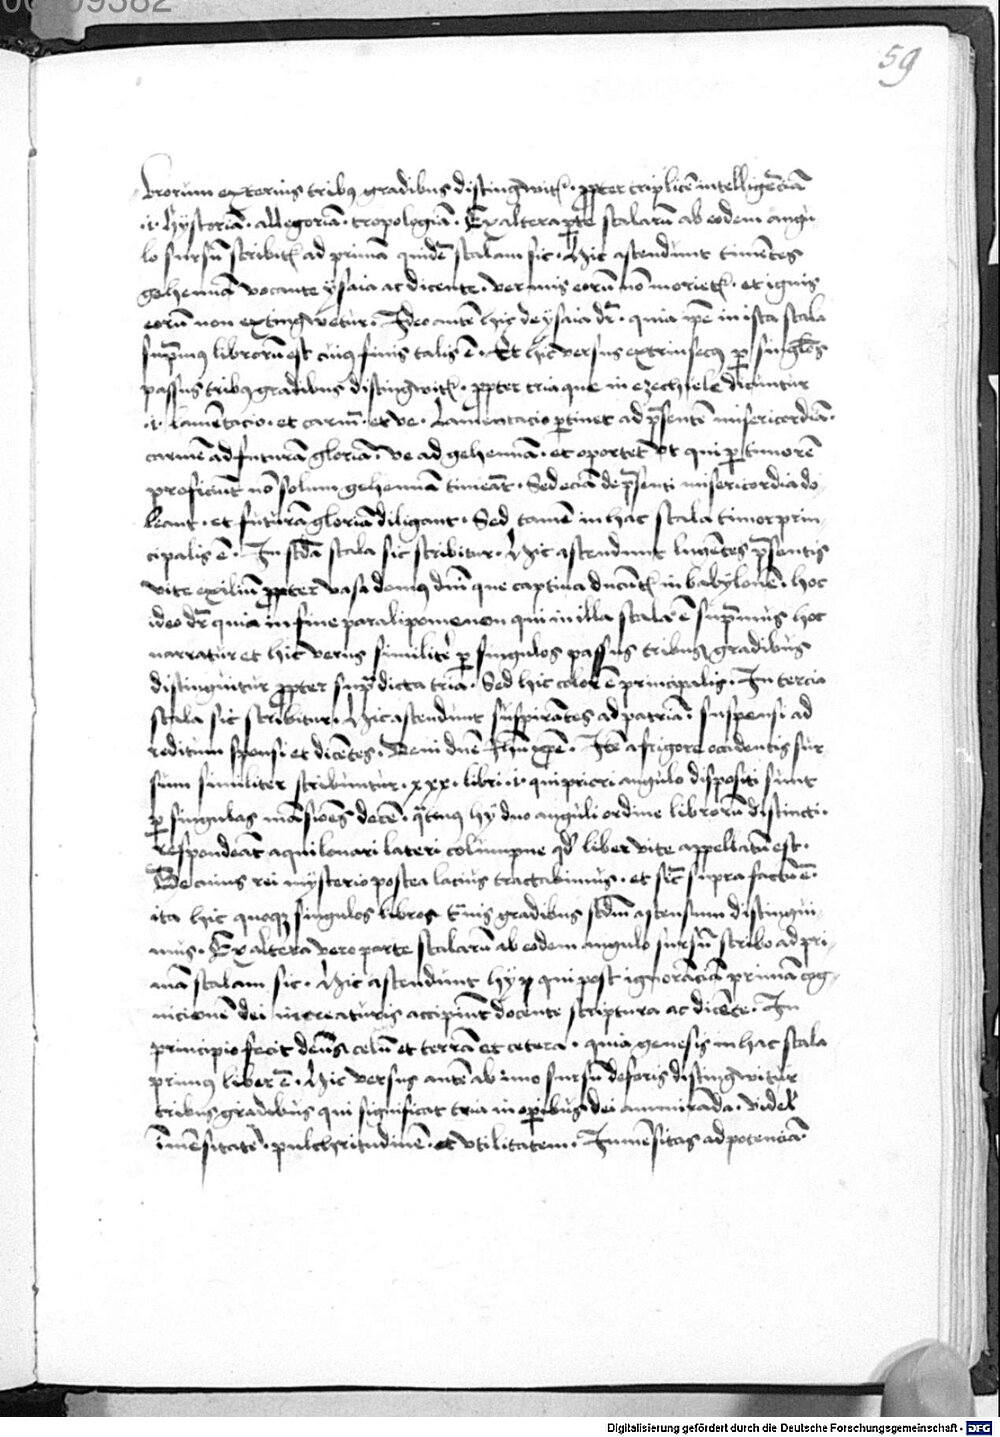 59
brorum exterius tribꝫ gradibus distingwitᷣ. ꝓpter triplicē intelligēciā
.i. hystoriā. allegoriā. tropologiā. Ex altera ꝑte scalarū ab eodem angu
lo sursū scribitᷣ ad primā quidē scalam sic. Hic ascendunt timētes
gehennā vocante ysaia ac dicente. vermis eorū nō morietᷣ. et ignis
eorū non extingwetur. Ideo autē hic de ysaia dr̄. quia ipē in ista scala
supͣmꝰ librorū est cuiꝰ finis talis ē. Et hic versus extrinsecꝰ ꝑ singl̄os
passus tribꝫ gradibus distingwitᷣ. ꝓpter tria que in ezechiele dicuntur
.i. lamētacio. et carmē. et ve. Lamentacio ꝑtinet ad p̄sentē misericordiā.
carmē ad futurā gloriā. ve ad gehennā. et oportet vt qui ꝑ timorē
proficiūt nō solum gehennā timeāt. Sed eciā de p̄senti misericordia do
leant. et futurā gloriā diligant. Sed tamē in hac scala timor prin
cipalis ē. In scd̄a scala sic scribitur. Hic ascendunt lugētes p̄sentis
vite exiliū ꝓpter vasa domꝰ dn̄i que captiua ducūtᷣ in babylonē. hoc
ideo dr̄ quia in fine paralipomenon qui in illa scala ē supͣmus hoc
narratur et hic versus similit͛ ꝑ singulos passus tribus gradibus
distinguitur ꝓpter sup̄dicta tria. Sed hic dolor ē principalis. In tercia
scala sic scribitur. Hic ascendunt suspirātes ad patriā. suspensi ad
reditum sponsi et dicētes. Veni dn̄e ihū xp̄e. Itē a frigore occidentis sur
sum similiter scribuntur .xxx. libri .i. qui priori angulo dispositi sunt
ꝑ singulas māsiōes decē. q̄tinꝰ hy duo anguli ordine librorū distincti.
respondeāt aquilonari lateri columpne qd̄ liber vite appellatū est.
De cuius rei mysterio postea lacius tractabimus. et sic̄ supra factū ē.
ita hic quoqꝫ singulos libros t̄nis gradibus scd̄m ascensum distingui
mus. Ex altera vero parte scalarū ab eodem angulo sursū scribo ad pri
mā scalam sic. Hic ascendunt hy qui post ignorāciā primā cog
nicionē dei in creaturis accipiūt docente scriptura ac dicēte. In
principio fecit deus celū et terrā et cetera. quia genesis in hac scala
primꝰ liber ē. Hic versus autē ab imo sursū deforis distingwitur
tribus gradibus qui significāt tria in oꝑibus dei ammirāda. videlꝫ
īmēsitatē. pulchritudinē. et vtilitatem. Inmēsitas ad potenciā.
Digitalisierung gefördert durch die Deutsche Forschungsgemeinschaft - DFG